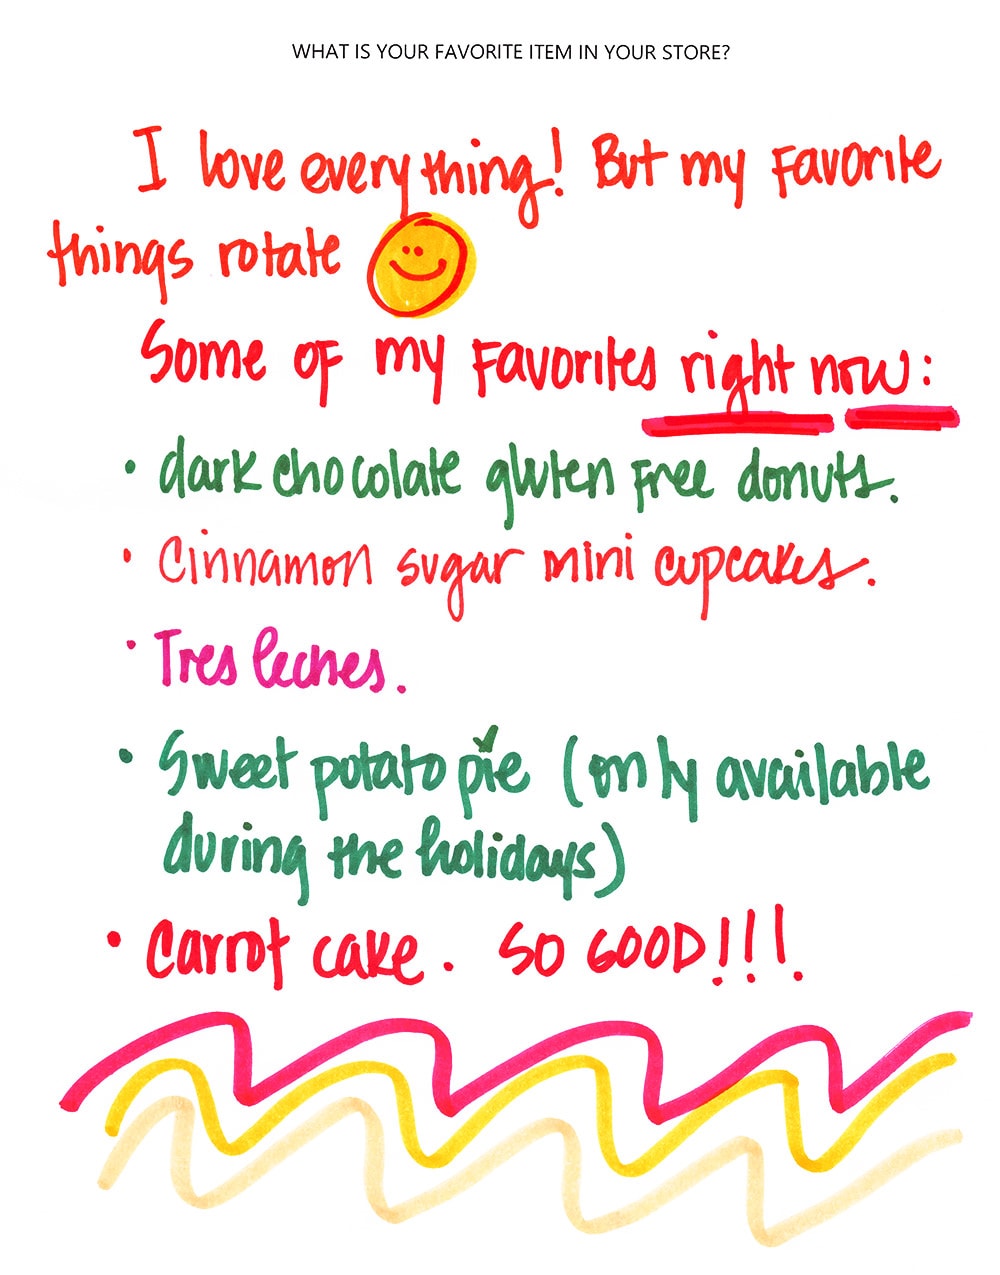 WHAT IS YOUR FAVORITE ITEM IN YOUR STORE?
I love everything! But my favorite
things rotate
Some of my favorites right now:
• dark chocolate gluten free donuts.
• Cinnamon sugar mini cupcakes.
• Tres leches.
• Sweet potato pie (only available
during the holidays)
• Carrot cake. SO GOOD!!!